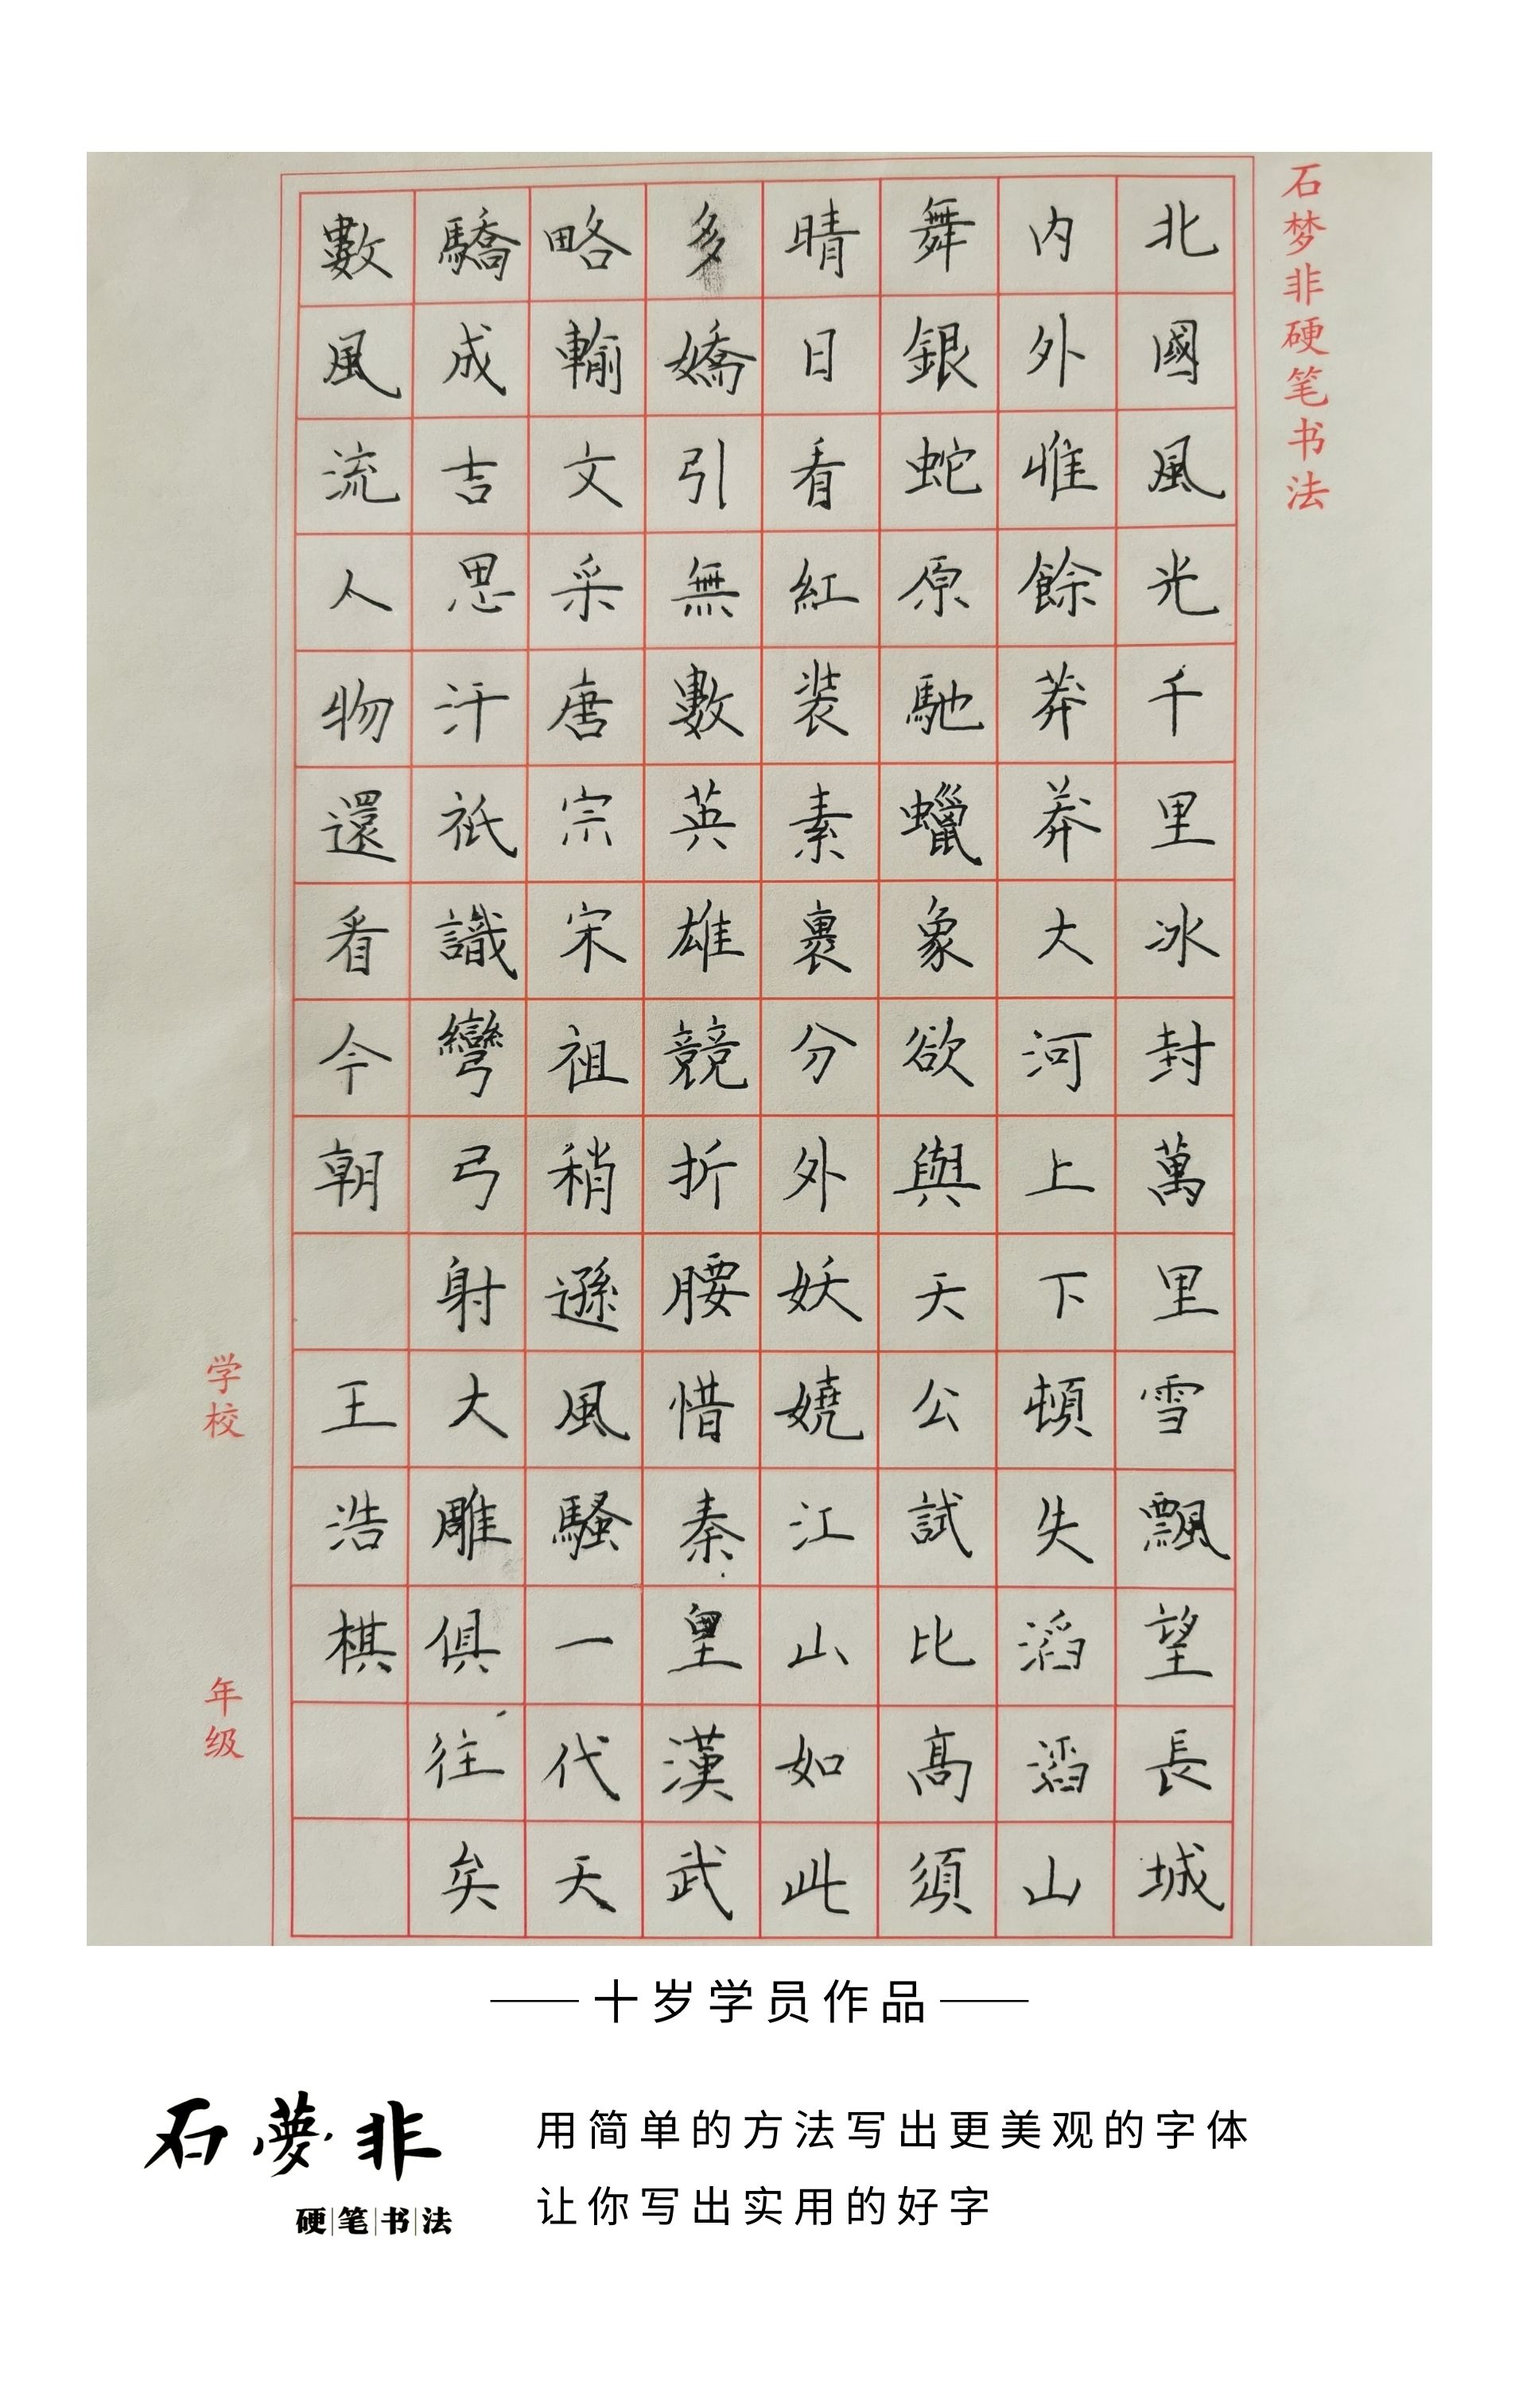 石梦非硬笔书法
北國風光千里冰封萬里雪飄望長城
内外惟餘莽莽大河上下頓失滔滔山
舞銀蛇原馳蠟象欲與天公試比髙須
晴日看紅装素裹分外妖嬈江山如此
多嬌引無數英雄競折腰惜秦皇漢武
略輸文采唐宗宋祖稍遜風騷一代天
驕成吉思汗祇識彎弓射大雕俱往矣
數風流人物還看今朝 王浩棋
学校 年级
十岁学员作品
石夢非
硬笔书法
用简单的方法写出更美观的字体
让你写出实用的好字